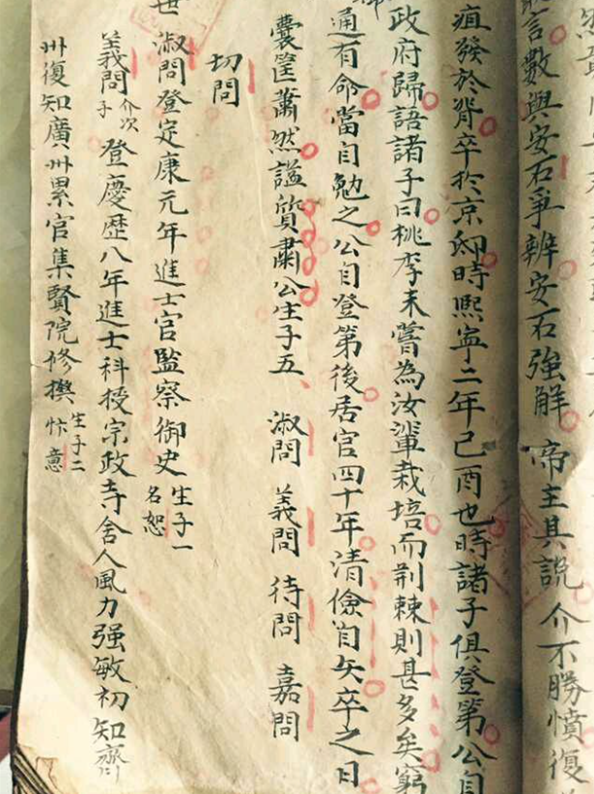 言數與安石爭辨安石強解帝主其說介不勝憤復
疽發於背卒於京邸時熙寧二年己酉也時諸子俱登第公自
政府歸語諸子曰桃李未嘗為汝輩栽培而荊棘則甚多矣窮
通有命當自勉之公自登第後居官四十年清儉自矢卒之日
囊篋蕭然諡質肅公生子五 淑問 義問 待問 嘉問
切問
世 淑問登定康元年進士官監察御史生子一名恕
義問介次子登慶歷八年進士科授宗政寺舍人風力强敏初知齊
州復知廣州累官集賢院修撰生子二 意